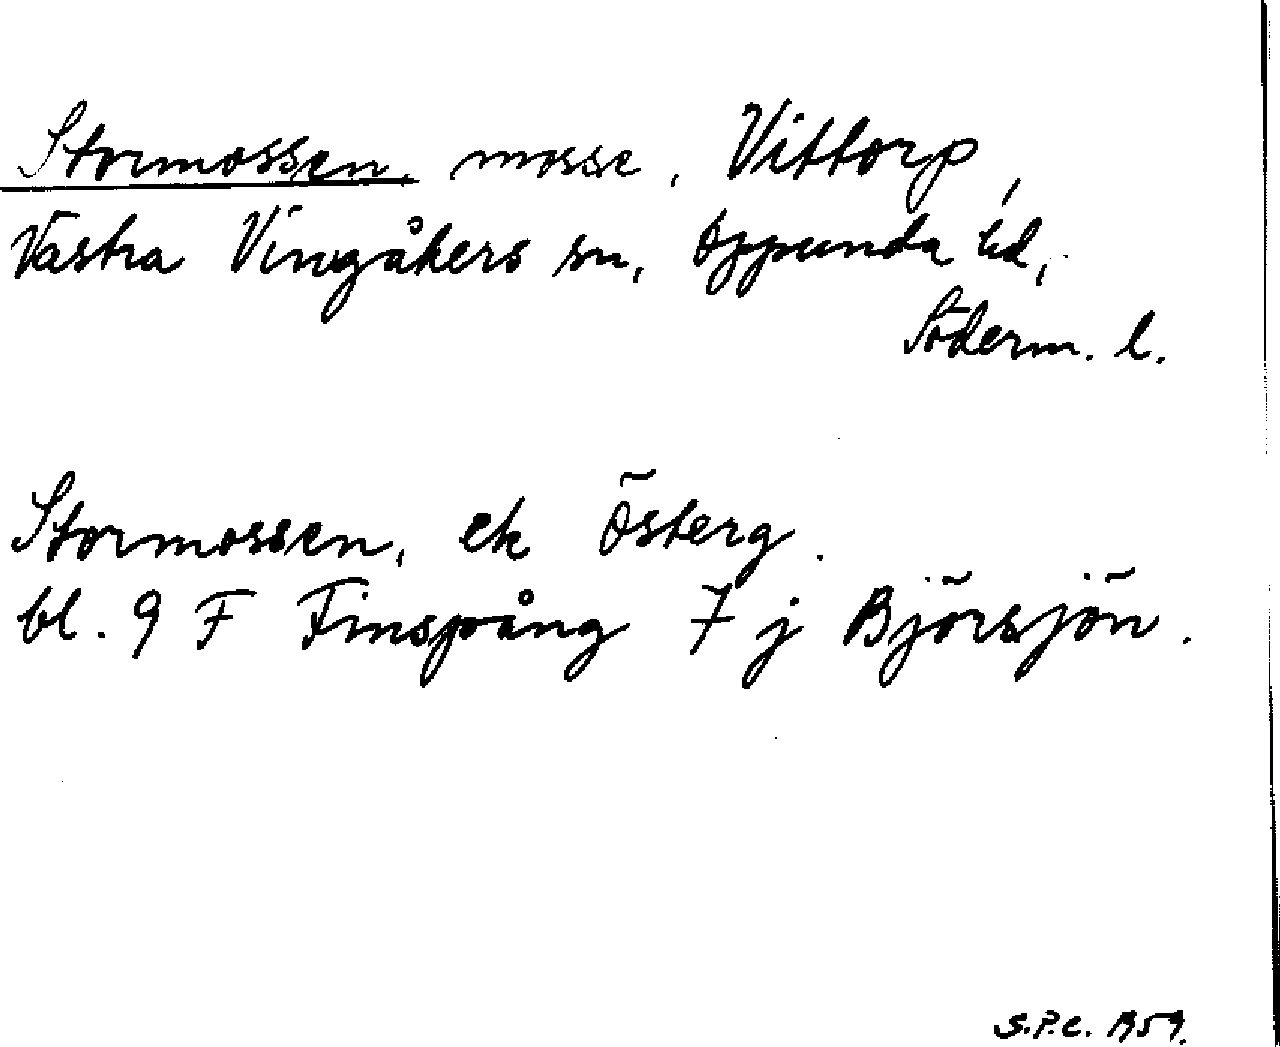 Stormossen, mosse, Vittorp,
Västra Vingåkers sn, Oppunda hd,
Söderm. l.
Stormossen, ek Österg.
bl. 9 F Finspång 7 j Björsjön.
S.P.C. 1959.